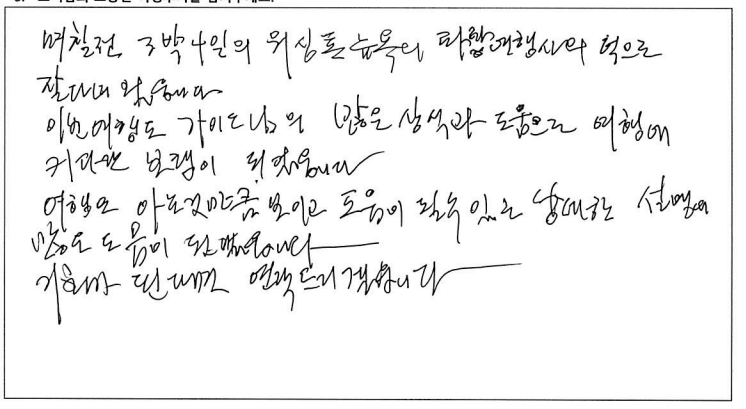 며칠전 3박4일의 워싱톤 뉴욕의 여행사의 덕으로
잘다녀 왔습니다
이번여행도 가이드님의 많은 상식과 도움으로 여행에
커다란 보램이 되었습니다
여행은 아는것만큼 보이고 도움이 될수 있는 설명에
많은 도움이 되었습니다
기회가 된다면 연락드리겠습니다